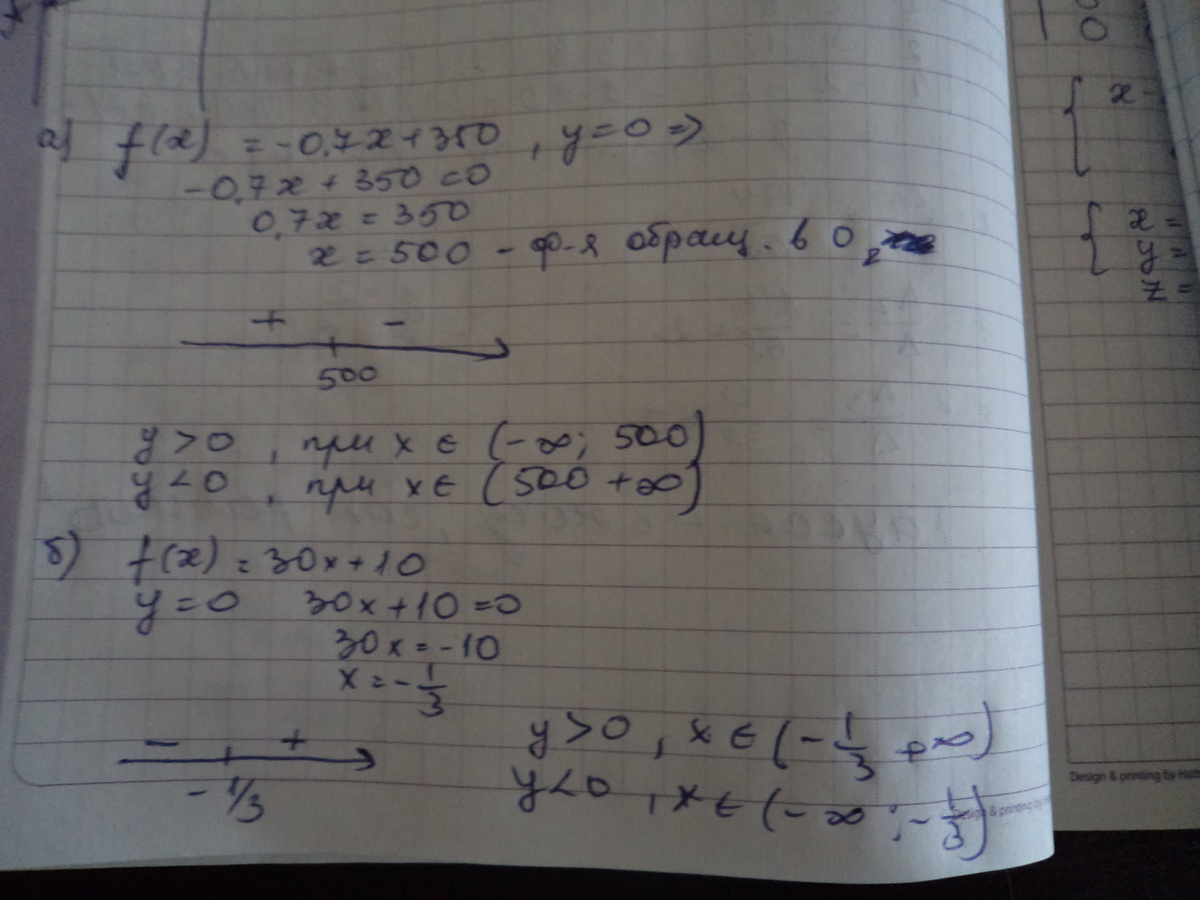 а) f(x) = -0,7x+350 , y=0 =>
-0,7x + 350 = 0
0,7x = 350
x = 500 - ф-я обращ. в 0,
+ -
500
y > 0 , при x ∈ (-∞; 500)
y < 0 , при x ∈ (500 +∞)
б) f(x) = 30x+10
y = 0 30x+10=0
30x = -10
x = -1/3
- +
-1/3
y>0 , x ∈ (-1/3 +∞)
y<0 , x ∈ (-∞ ; -1/3)
0
x-
x =
y =
z =
Design & printing by